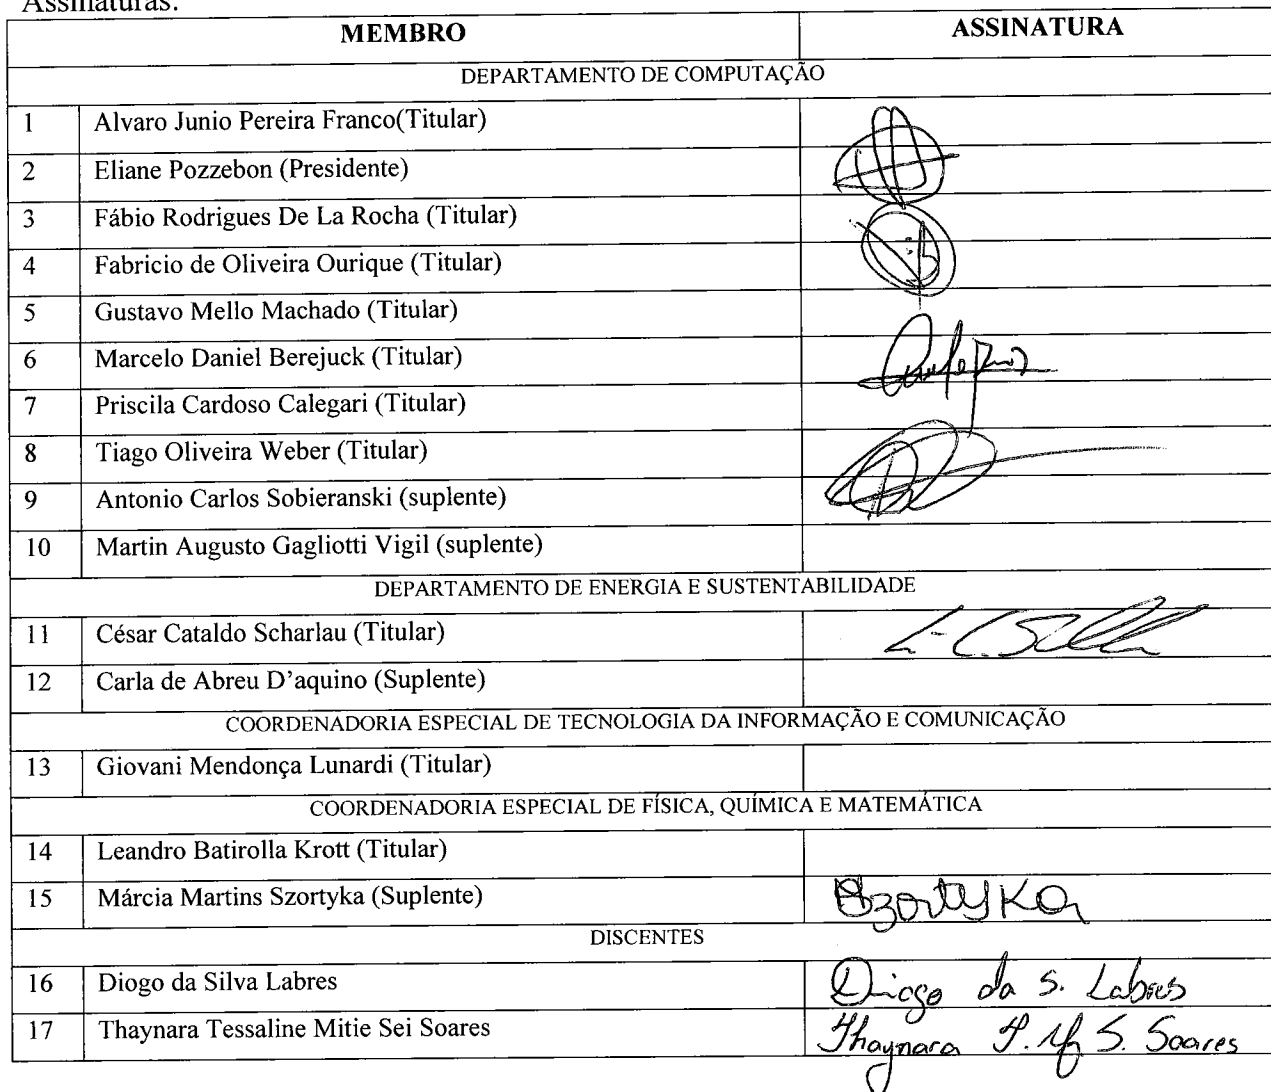 Assinaturas:
MEMBRO ASSINATURA
DEPARTAMENTO DE COMPUTAÇÃO
1 Alvaro Junio Pereira Franco(Titular)
2 Eliane Pozzebon (Presidente)
3 Fábio Rodrigues De La Rocha (Titular)
4 Fabricio de Oliveira Ourique (Titular)
5 Gustavo Mello Machado (Titular)
6 Marcelo Daniel Berejuck (Titular)
7 Priscila Cardoso Calegari (Titular)
8 Tiago Oliveira Weber (Titular)
9 Antonio Carlos Sobieranski (suplente)
10 Martin Augusto Gagliotti Vigil (suplente)
DEPARTAMENTO DE ENERGIA E SUSTENTABILIDADE
11 César Cataldo Scharlau (Titular)
12 Carla de Abreu D'aquino (Suplente)
COORDENADORIA ESPECIAL DE TECNOLOGIA DA INFORMAÇÃO E COMUNICAÇÃO
13 Giovani Mendonça Lunardi (Titular)
COORDENADORIA ESPECIAL DE FÍSICA, QUÍMICA E MATEMÁTICA
14 Leandro Batirolla Krott (Titular)
15 Márcia Martins Szortyka (Suplente) Szortyka
DISCENTES
16 Diogo da Silva Labres Diogo da S. Labres
17 Thaynara Tessaline Mitie Sei Soares Thaynara T. M. S. Soares